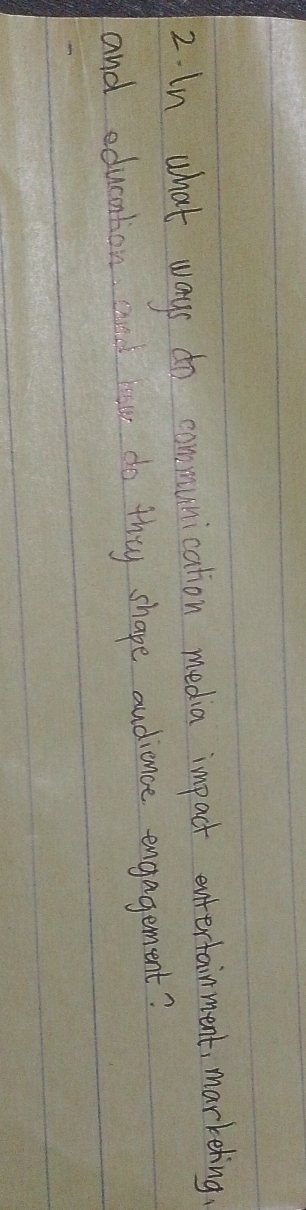 2. In what ways do communication media impact entertainment, marketing,
and education, and how do they shape audience engagement?